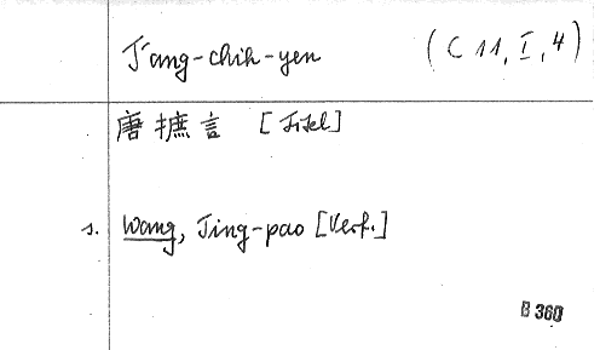 T'ang-chih-yen (C 11, I, 4)
唐摭言 [Titel]
s. Wang, Ting-pao [Verf.]
B 360